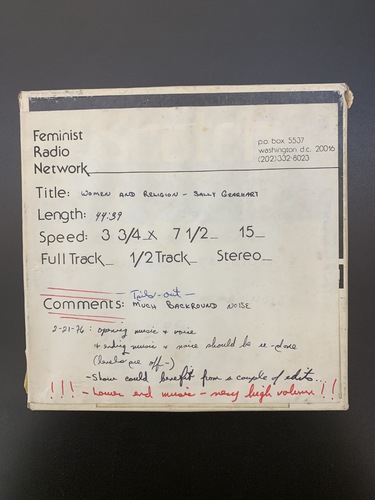 Feminist
Radio
Network
p.o. box 5537
washington d.c. 20016
(202) 332-8023
Title: WOMEN AND RELIGION - SALLY GEARHART
Length: 44:39
Speed: 3 3/4 X 7 1/2 15
Full Track 1/2 Track Stereo
- Tails-out -
Comments: MUCH BACKGROUND NOISE
2-21-76: opening music & voice
& ending music & voice should be re-done
(levels are off -)
- Show could benefit from a couple of edits...
!!! - Lower end music - very high volume!!